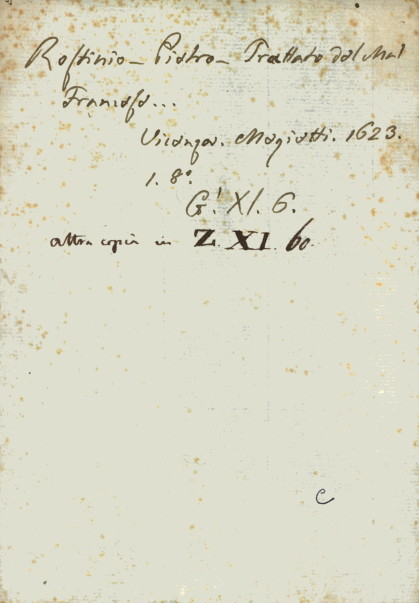 Rostinio - Pietro - Trattato del Mal
Francese...
Vicenza. Megietti. 1623.
1. 8º.
G.' XI. 6.
altra copia in Z. XI. 60.
C